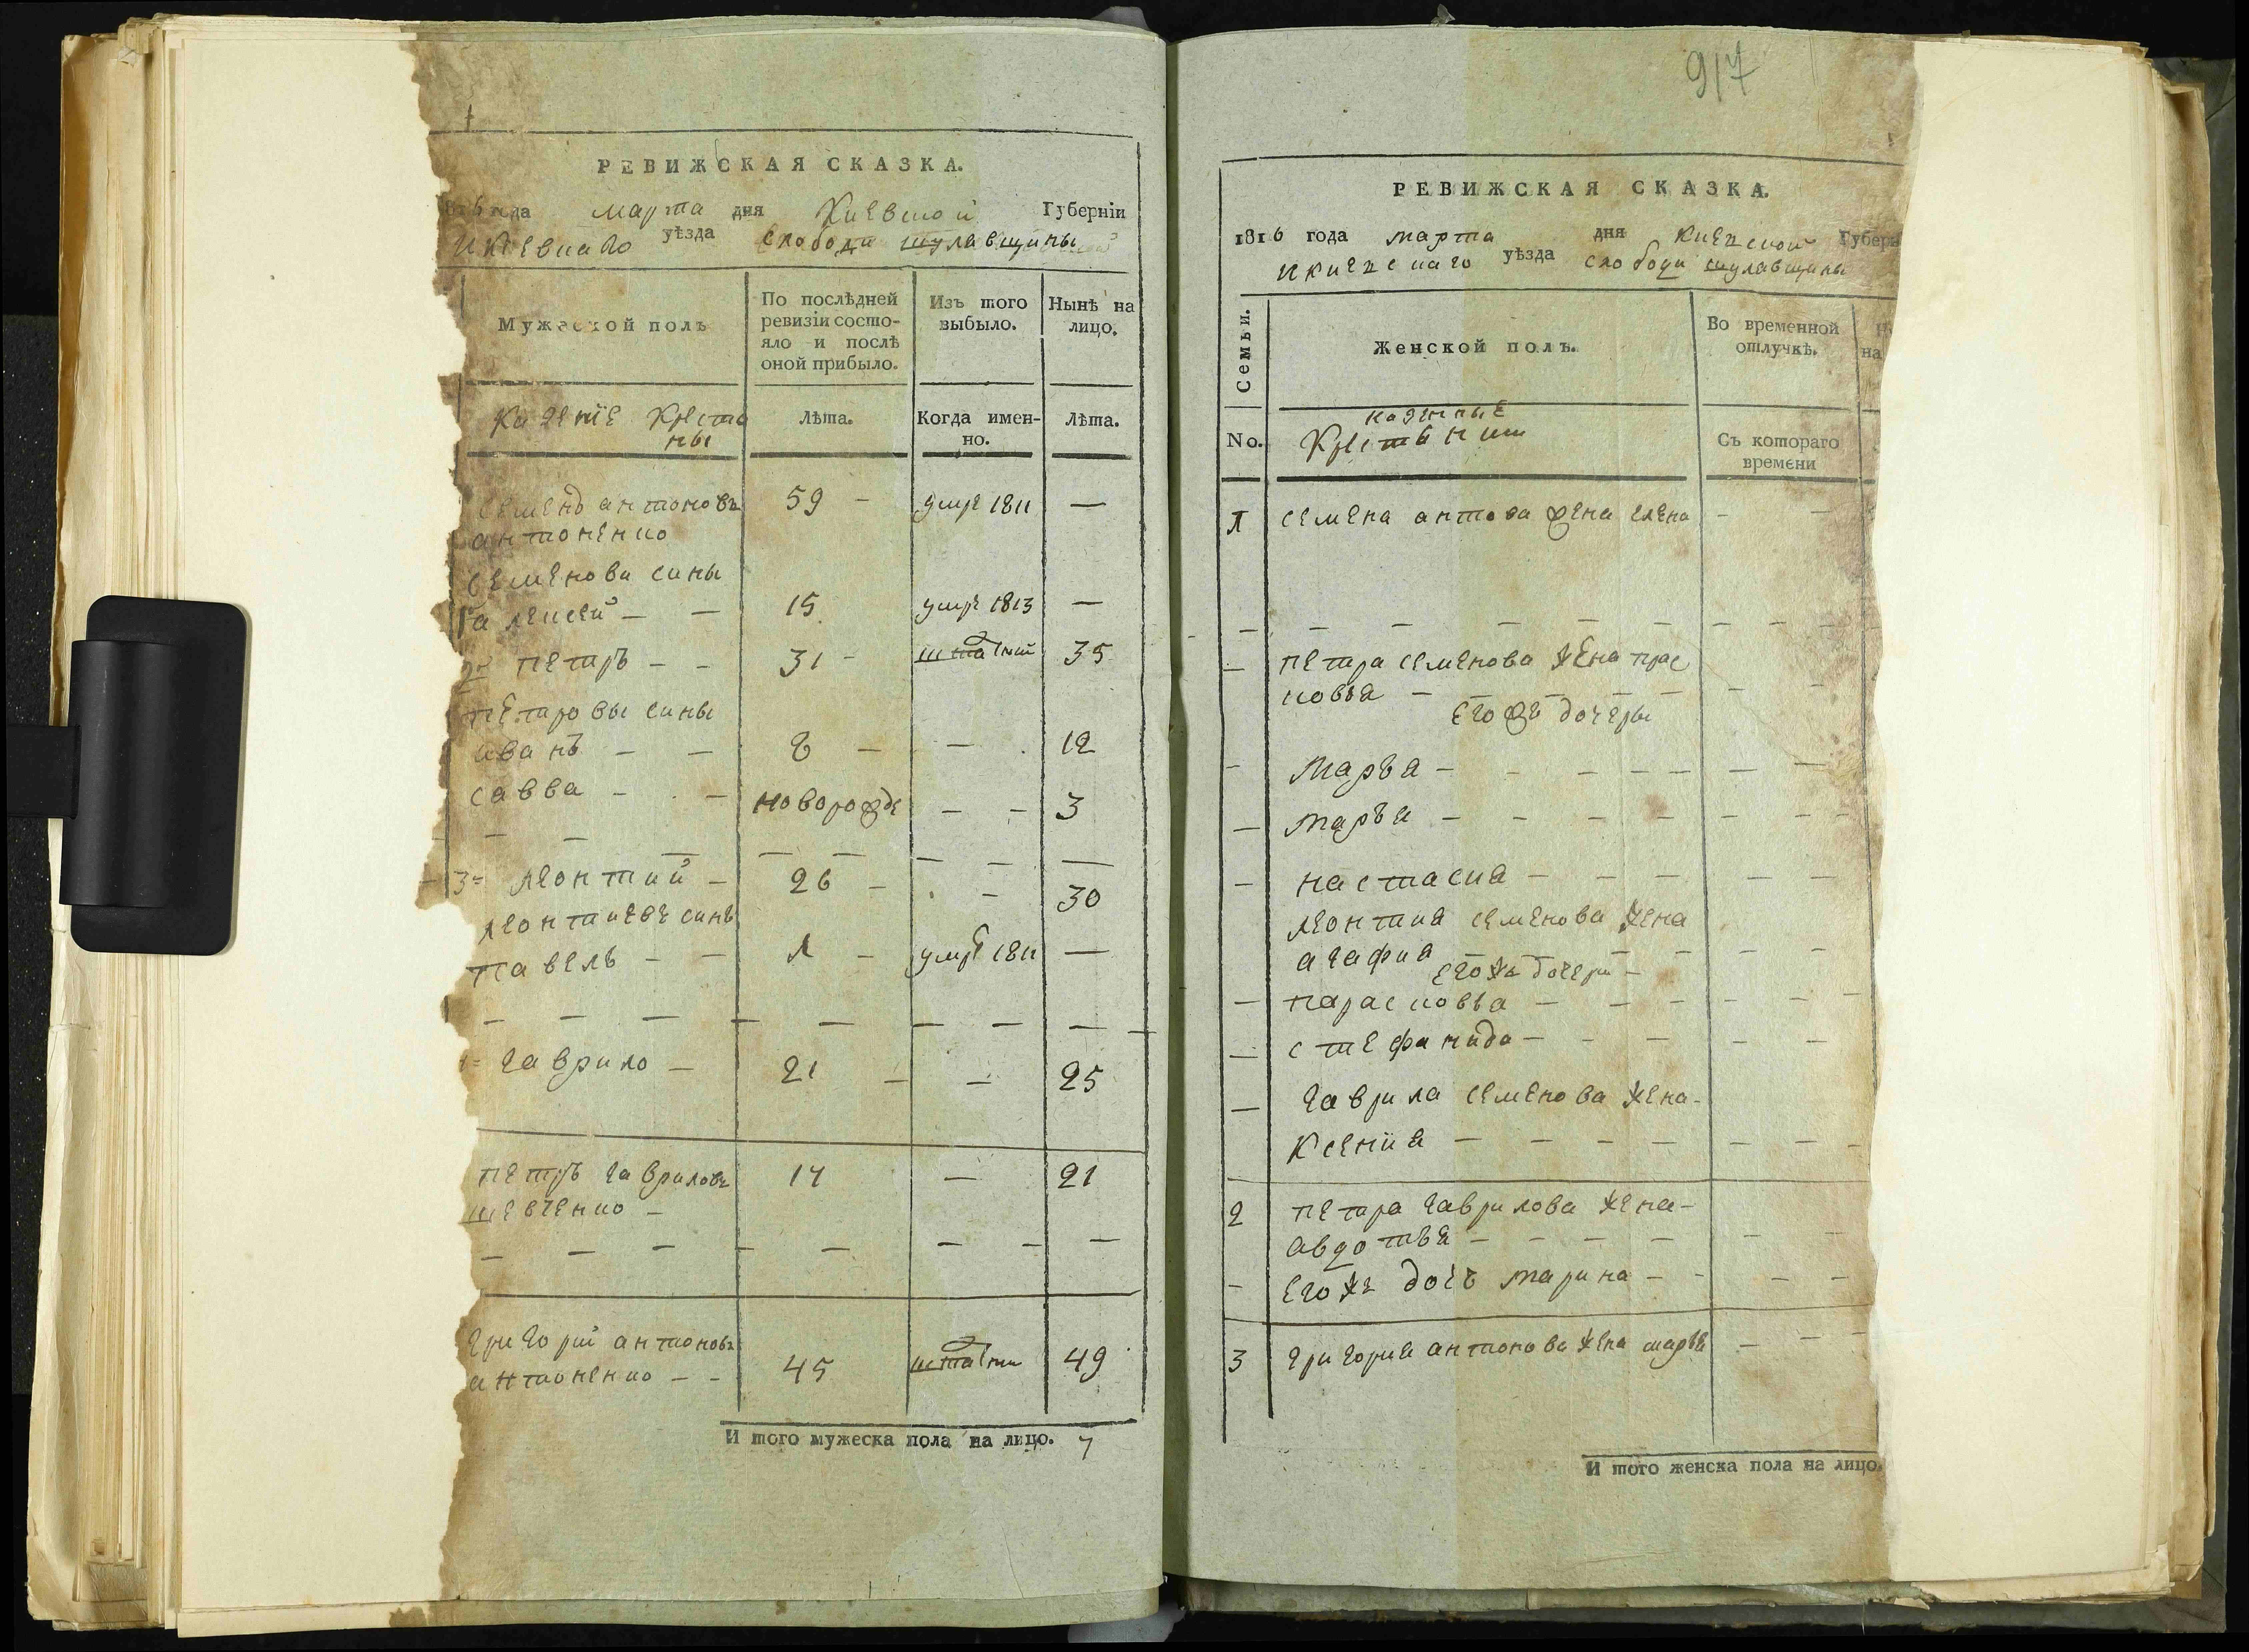 РЕВИЖСКАЯ СКАЗКА.
года марта дня Киевской Губернїи
икиевнаго уѣзда слободи шулавщины
Мужеской полъ
По послѣдней
ревизїи состо-
яло и послѣ
оной прибыло.
Изъ того
выбыло.
Нынѣ на
лицо.
Казенїе Крестя
ны
Лѣта.
Когда имен-
но.
Лѣта.
Семенъ антоновъ 59 - умре 1811 —
антоненко
Семенови сины
алексей — — 15 умре 1813 —
2й петръ - - 31 - 35
петровы сины
иванъ — — 8 — — 12
савва — — новорожде — — 3
3й леонтий — 26 — — 30
леонтиеве синъ
павелъ — — 1 — умре 1811 —
гаврило — 21 — — 25
петръ гавриловъ 17 — 21
шевченко —
григорий антоновъ
антоненко — - 45 49
И того мужеска пола на лицо. 7
917
РЕВИЖСКАЯ СКАЗКА.
1816 года марта дня киевской Губерн
икиевскаго уѣзда слободи шулавщины
Семьи.
Женской полъ.
Во временной
отлучкѣ.
на
No.
казенные
Съ котораго
времени
1 семена антова жена елена — —
— петра семенова жена прас
ковья — — — — —
его же дочеры
- Марья — - — — — — —
— Марья — - — — — — —
— настасия — — — — —
леонтия семенова жена
агафия — — — — —
его же дочери —
— парасковья — — — — — —
— стефанида — - — — —
— гаврила семенова жена -
Ксения — — — — — — —
2 петра гаврилова жена —
авдотья — — — — — —
- его же дочь марина — - — —
3 григория антонова жена марья — — —
И того женска пола на лицо.